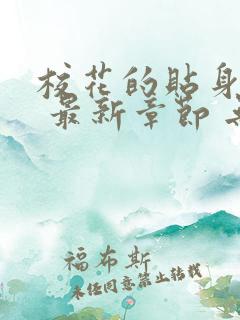 校花的贴身
最新章节
福布斯
未经同意禁止转载